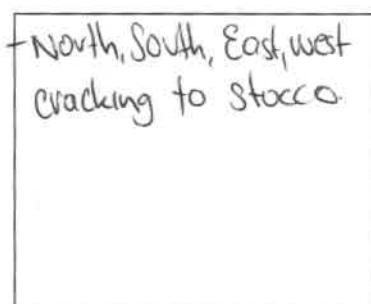 -North, South, East, west
cracking to stucco.